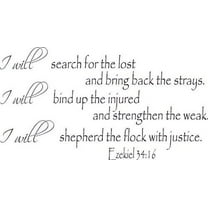 I will search for the lost
and bring back the strays.
I will bind up the injured
and strengthen the weak.
I will shepherd the flock with justice.
Ezekiel 34:16